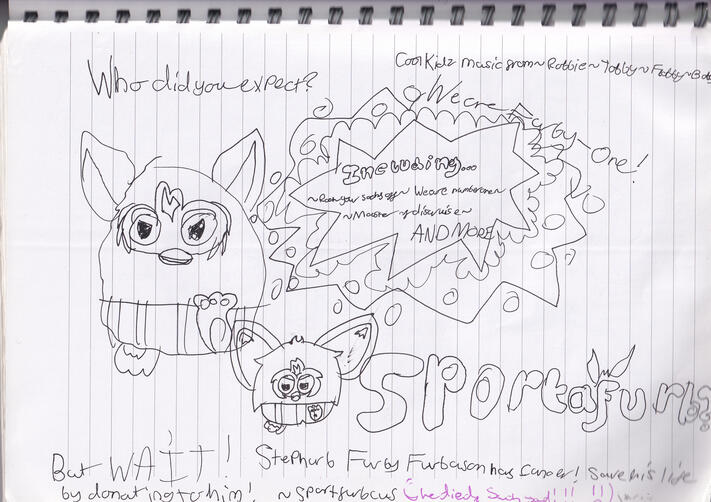 Cool Kidz music from~ Robbie~ Tobby~ Fobby~ Bob
Who did you expect?
We are Furby One!
Including...
~Rock your socks off~ We are number one~
~Master of disguise~
AND MORE
Sportafurb
But WAIT! Stephurb Furby Furbason has cancer! Save his life
by donating to him! ~sportfurb.us (he died, such sad!!!!!)